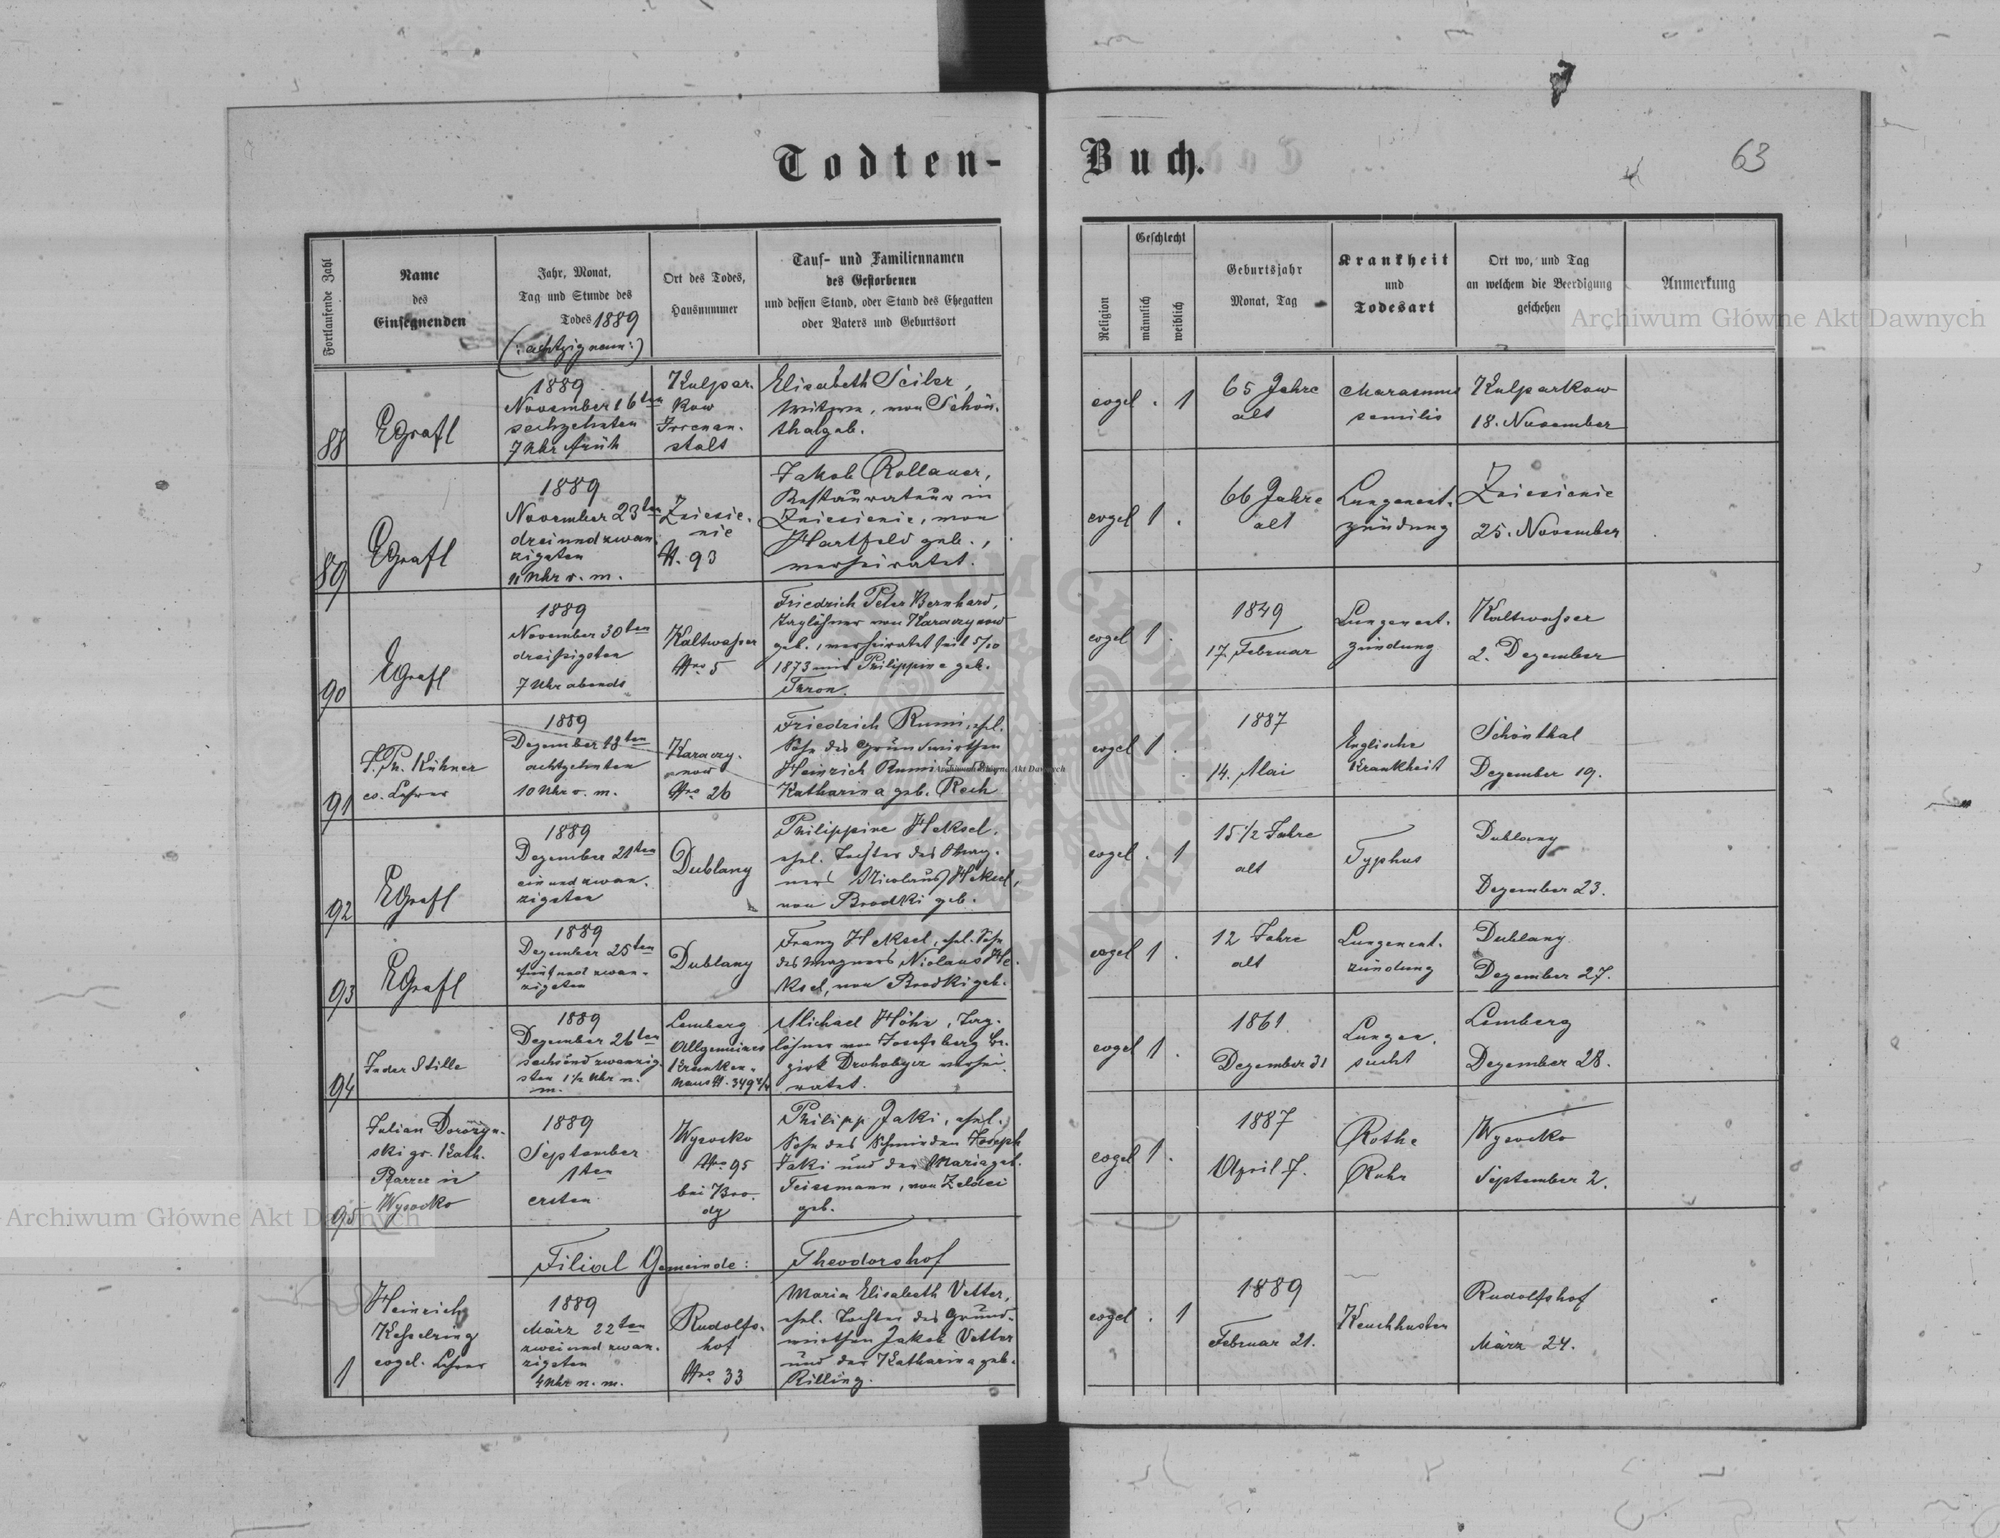 Todten-Buch.
63
Fortlaufende Zahl
Name
des
Einsegnenden
Jahr, Monat,
Tag und Stunde des
Todes 1889
(: achtzig neun :)
Ort des Todes,
Hausnummer
Tauf- und Familiennamen
des Gestorbenen
und dessen Stand, oder Stand des Ehegatten
oder Vaters und Geburtsort
Religion
Geschlecht
männlich
weiblich
Geburtsjahr
Monat, Tag
Krankheit
und
Todesart
Ort wo, und Tag
an welchem die Beerdigung
geschehen
Anmerkung
Archiwum Główne Akt Dawnych
88
EGrafl
1889
November 16ten
sechzehnten
7 Uhr früh
Kulpar-
kow
Irrenan-
stalt
Elisabeth Seiler,
Witwe, von Schön-
thal geb.
evgel . 1
65 Jahre
alt
Marasmus
senilis
Kulparkow
18. November
89
EGrafl
1889
November 23ten
drei und zwan-
zigsten
11 Uhr v. m.
Zniesie-
nie
N. 93
Jakob Rollauer,
Restaurateur in
Zniesienie, von
Hartfeld geb.,
verheiratet.
evgel 1 .
66 Jahre
alt
Lungenent-
zündung
Zniesienie
25. November
90
EGrafl
1889
November 30ten
dreißigsten
7 Uhr abends
Kaltwasser
Nro 5
Friedrich Peter Bernhard,
Taglöhner von Karaczynow
geb., verheiratet seit 5/10
1873 mit Philippine geb.
Thron.
evgel 1 .
1849
17. Februar
Lungenent-
zündung
Kaltwasser
2. Dezember
91
Kühner
ev. Lehrer
1889
Dezember 18ten
achtzehnten
10 Uhr v. m.
Karaczy-
now
Nro 26
Friedrich Rumi, ehel.
Sohn des Grundwirthen
Heinrich Rumi
Katharina geb. Rech
Archiwum Główne Akt Dawnych
evgel 1 .
1887
14. Mai
Englische
Krankheit
Schönthal
Dezember 19.
92
EGrafl
1889
Dezember 21ten
ein und zwan-
zigsten
Dublany
Philippine Heksel,
ehel. Tochter des
Nicolaus Heksel,
von Brodki geb.
evgel . 1
15 1/2 Jahre
alt
Typhus
Dublany
Dezember 23.
93
EGrafl
1889
Dezember 25ten
fünf und zwan-
zigsten
Dublany
Franz Heksel, ehel. Sohn
des Wagners Niolaus He-
ksel, von Brodki geb.
evgel 1 .
12 Jahre
alt
Lungenent-
zündung
Dublany
Dezember 27.
94
In der Stille
1889
Dezember 26ten
sechs und zwanzig-
sten 1 1/2 Uhr n.
m.
Lemberg
Allgemeines
Kranken-
haus N. 349 2/4
Michael Höhn, Tag-
löhner von Josefsberg Be-
zirk Drohobycz verhei-
ratet.
evgel 1 .
1861
Dezember 31
Lungen-
sucht
Lemberg
Dezember 28.
95
Julian Dorożyn-
ski gr. Kath.
Pfarrer in
Wysocko
1889
September
1ten
ersten
Wysocko
Nro 95
bei Bro-
dy
Philipp Jaki, ehel.
Sohn des Schmieden Joseph
Jaki und der Maria geb.
Teissmann, von
geb.
evgel 1 .
1887
April 7.
Rothe
Ruhr
Wysocko
September 2.
Filial Gemeinde: Theodorshof
1
Heinrich
Kesselring
evgel. Lehrer
1889
März 22ten
zwei und zwan-
zigsten
4 Uhr n. m.
Rudolfs-
hof
Nro 33
Maria Elisabeth Vetter,
ehel. Tochter des Grund-
wirthen Jakob Vetter
und der Katharina geb.
Rilling.
evgel . 1
1889
Februar 21.
Keuchhusten
Rudolfshof
März 24.
Archiwum Główne Akt Dawnych